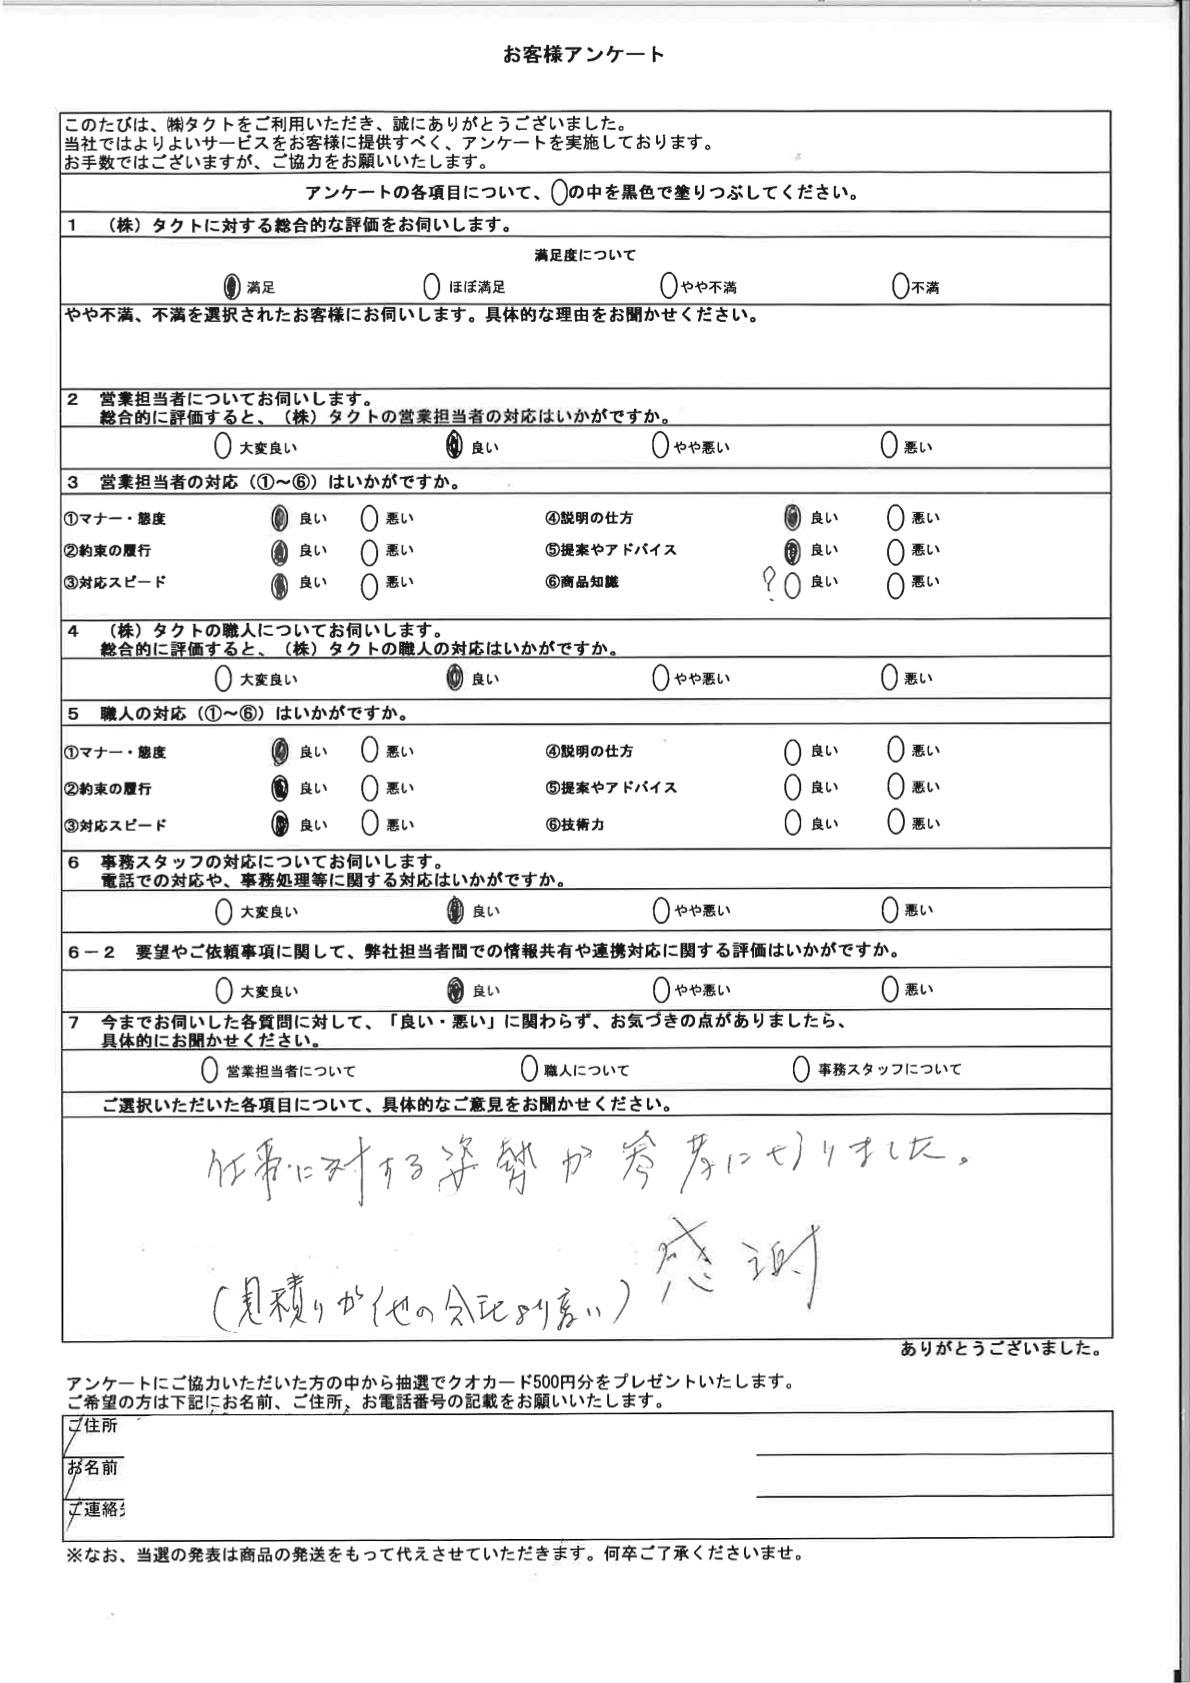 お客様アンケート
このたびは、㈱タクトをご利用いただき、誠にありがとうございました。
当社ではよりよいサービスをお客様に提供すべく、アンケートを実施しております。
お手数ではございますが、ご協力をお願いいたします。
アンケートの各項目について、○の中を黒色で塗りつぶしてください。
1 (株)タクトに対する総合的な評価をお伺いします。
満足度について
満足 ほぼ満足 やや不満 不満
やや不満、不満を選択されたお客様にお伺いします。具体的な理由をお聞かせください。
2 営業担当者についてお伺いします。
総合的に評価すると、(株)タクトの営業担当者の対応はいかがですか。
大変良い 良い やや悪い 悪い
3 営業担当者の対応(①～⑥)はいかがですか。
①マナー・態度 良い 悪い ④説明の仕方 良い 悪い
②約束の履行 良い 悪い ⑤提案やアドバイス 良い 悪い
③対応スピード 良い 悪い ⑥商品知識 ? 良い 悪い
4 (株)タクトの職人についてお伺いします。
総合的に評価すると、(株)タクトの職人の対応はいかがですか。
大変良い 良い やや悪い 悪い
5 職人の対応(①～⑥)はいかがですか。
①マナー・態度 良い 悪い ④説明の仕方 良い 悪い
②約束の履行 良い 悪い ⑤提案やアドバイス 良い 悪い
③対応スピード 良い 悪い ⑥技術力 良い 悪い
6 事務スタッフの対応についてお伺いします。
電話での対応や、事務処理等に関する対応はいかがですか。
大変良い 良い やや悪い 悪い
6－2 要望やご依頼事項に関して、弊社担当者間での情報共有や連携対応に関する評価はいかがですか。
大変良い 良い やや悪い 悪い
7 今までお伺いした各質問に対して、「良い・悪い」に関わらず、お気づきの点がありましたら、
具体的にお聞かせください。
営業担当者について 職人について 事務スタッフについて
ご選択いただいた各項目について、具体的なご意見をお聞かせください。
仕事に対する姿勢が参考になりました。
感謝
(見積りが他の会社より高い)
ありがとうございました。
アンケートにご協力いただいた方の中から抽選でクオカード500円分をプレゼントいたします。
ご希望の方は下記にお名前、ご住所、お電話番号の記載をお願いいたします。
ご住所
お名前
ご連絡
※なお、当選の発表は商品の発送をもって代えさせていただきます。何卒ご了承くださいませ。